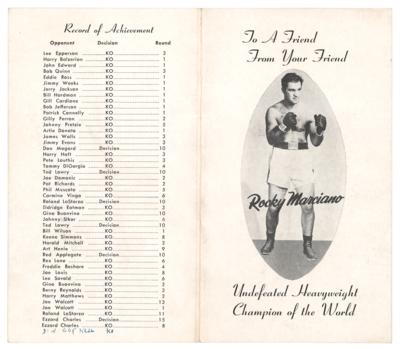 Record of Achievement
Opponent Decision Round
Lee Epperson KO 3
Harry Balzerian KO 1
John Edward KO 1
Bob Quinn KO 3
Eddie Ross KO 1
Jimmy Weeks KO 1
Jerry Jackson KO 1
Bill Hardman KO 1
Gill Cardione KO 1
Bob Jefferson KO 1
Patrick Connelly KO 1
Gilly Ferron KO 2
Johnny Pretzie KO 5
Artie Donato KO 1
James Walls KO 3
Jimmy Evans KO 3
Don Mogard Decision 10
Harry Haft KO 3
Pete Louthis KO 3
Tommy DiGiorgio KO 4
Ted Lowry Decision 10
Joe Domonic KO 2
Pat Richards KO 2
Phil Muscato KO 5
Carmine Vingo KO 6
Roland LaStarza Decision 10
Eldridge Eatman KO 3
Gino Buonvino KO 10
Johnny Skor KO 6
Ted Lowry Decision 10
Bill Wilson KO 1
Keene Simmons KO 8
Harold Mitchell KO 2
Art Henie KO 9
Red Applegate Decision 10
Rex Lane KO 6
Freddie Beshore KO 4
Joe Louis KO 8
Lee Savold KO 6
Gino Buonvino KO 2
Berny Reynolds KO 3
Harry Matthews KO 2
Joe Walcott KO 13
Joe Walcott KO 1
Roland LaStarza KO 11
Ezzard Charles Decision 15
Ezzard Charles KO 8
KO
To A Friend
From Your Friend
Rocky Marciano
Undefeated Heavyweight
Champion of the World